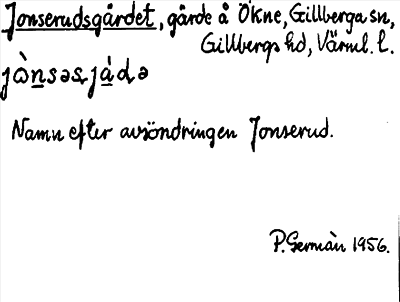 Jonserudsgärdet, gärde å Ökne, Gillberga sn,
Gillbergs hd, Värml. l.
jɷ̀nsəsjádə
Namn efter avsöndringen Jonserud.
P. Germàn 1956.